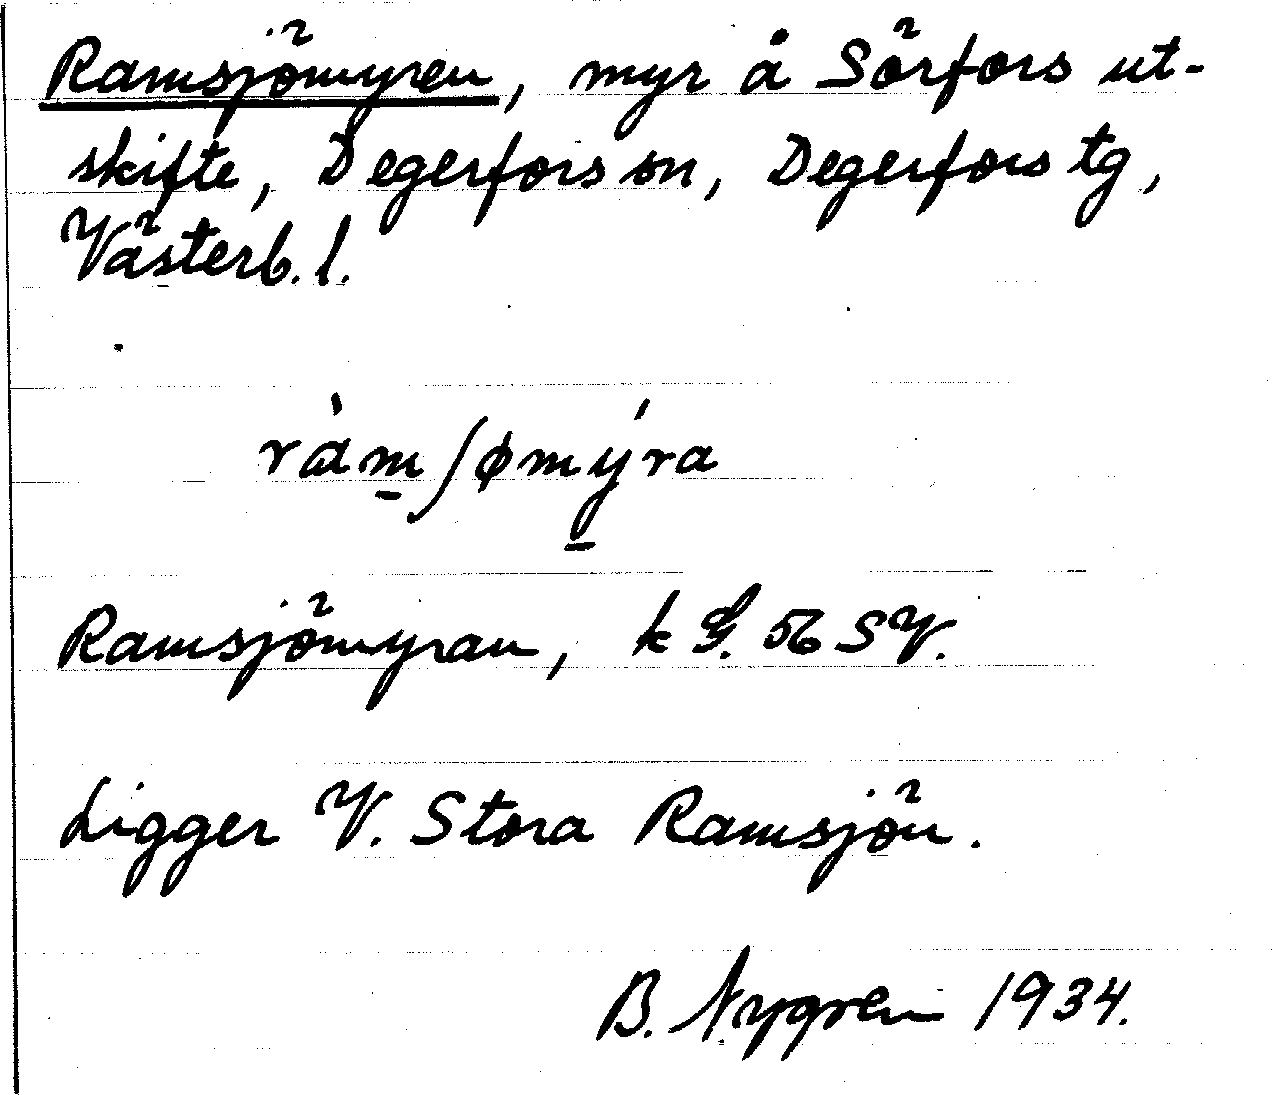 Ramsjömyren, myr å Sörfors ut-
skifte, Degerfors sn, Degerfors tg,
Västerb. l.
ràm̲ʃømý̲ra
Ramsjömyran, k G. 56 SV.
Ligger V. Stora Ramsjön.
B. Nygren 1934.